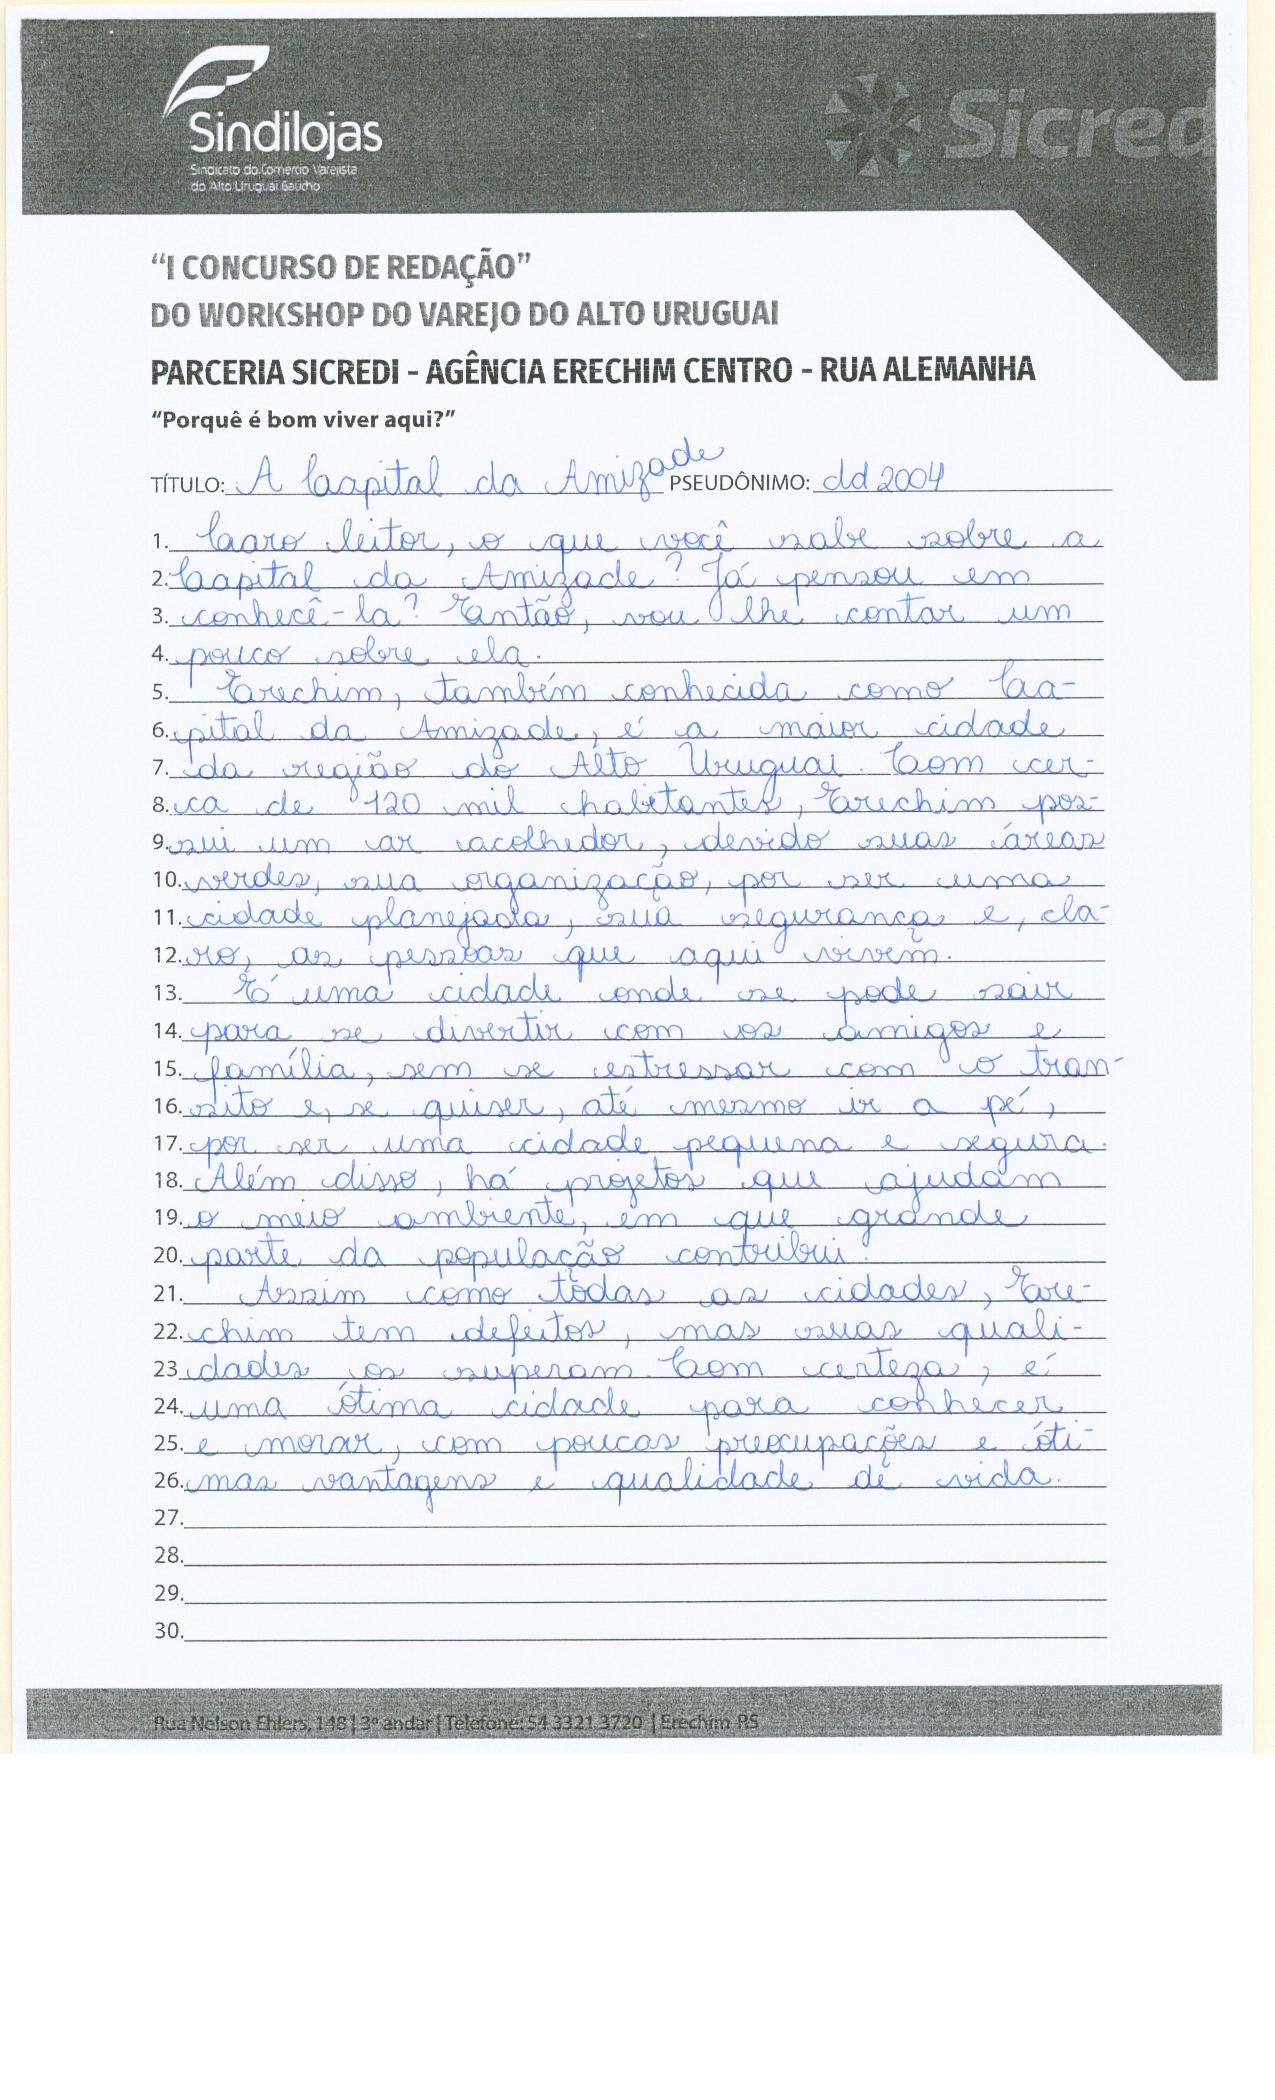 Sindilojas
Sindicato do Comercio Varejista
do Alto Uruguai Gaucho
Sicred
“I CONCURSO DE REDAÇÃO”
DO WORKSHOP DO VAREJO DO ALTO URUGUAI
PARCERIA SICREDI - AGÊNCIA ERECHIM CENTRO - RUA ALEMANHA
“Porquê é bom viver aqui?”
TÍTULO: A Capital da Amizade PSEUDÔNIMO: dd 2004
1. Caro leitor, o que você sabe sobre a
2. Capital da Amizade? Já pensou em
3. conhecê-la? Então, vou lhe contar um
4. pouco sobre ela.
5. Erechim, também conhecida como Ca-
6. pital da Amizade, é a maior cidade
7. da região do Alto Uruguai. Com cer-
8. ca de 120 mil habitantes, Erechim pos-
9. sui um ar acolhedor, devido suas áreas
10. verdes, sua organização, por ser uma
11. cidade planejada, sua segurança e, cla-
12. ro, as pessoas que aqui vivem.
13. É uma cidade onde se pode sair
14. para se divertir com os amigos e
15. família, sem se estressar com o tran-
16. sito e, se quiser, até mesmo ir a pé,
17. por ser uma cidade pequena e segura.
18. Além disso, há projetos que ajudam
19. o meio ambiente, em que grande
20. parte da população contribui.
21. Assim como todas as cidades, Ere-
22. chim tem defeitos, mas suas quali-
23. dades os superam. Com certeza, é
24. uma ótima cidade para conhecer
25. e morar, com poucas preocupações e óti-
26. mas vantagens e qualidade de vida.
27.
28.
29.
30.
Rua Nelson Ehlers, 148 | 3º andar | Telefone: 54 3321 3720 | Erechim-RS